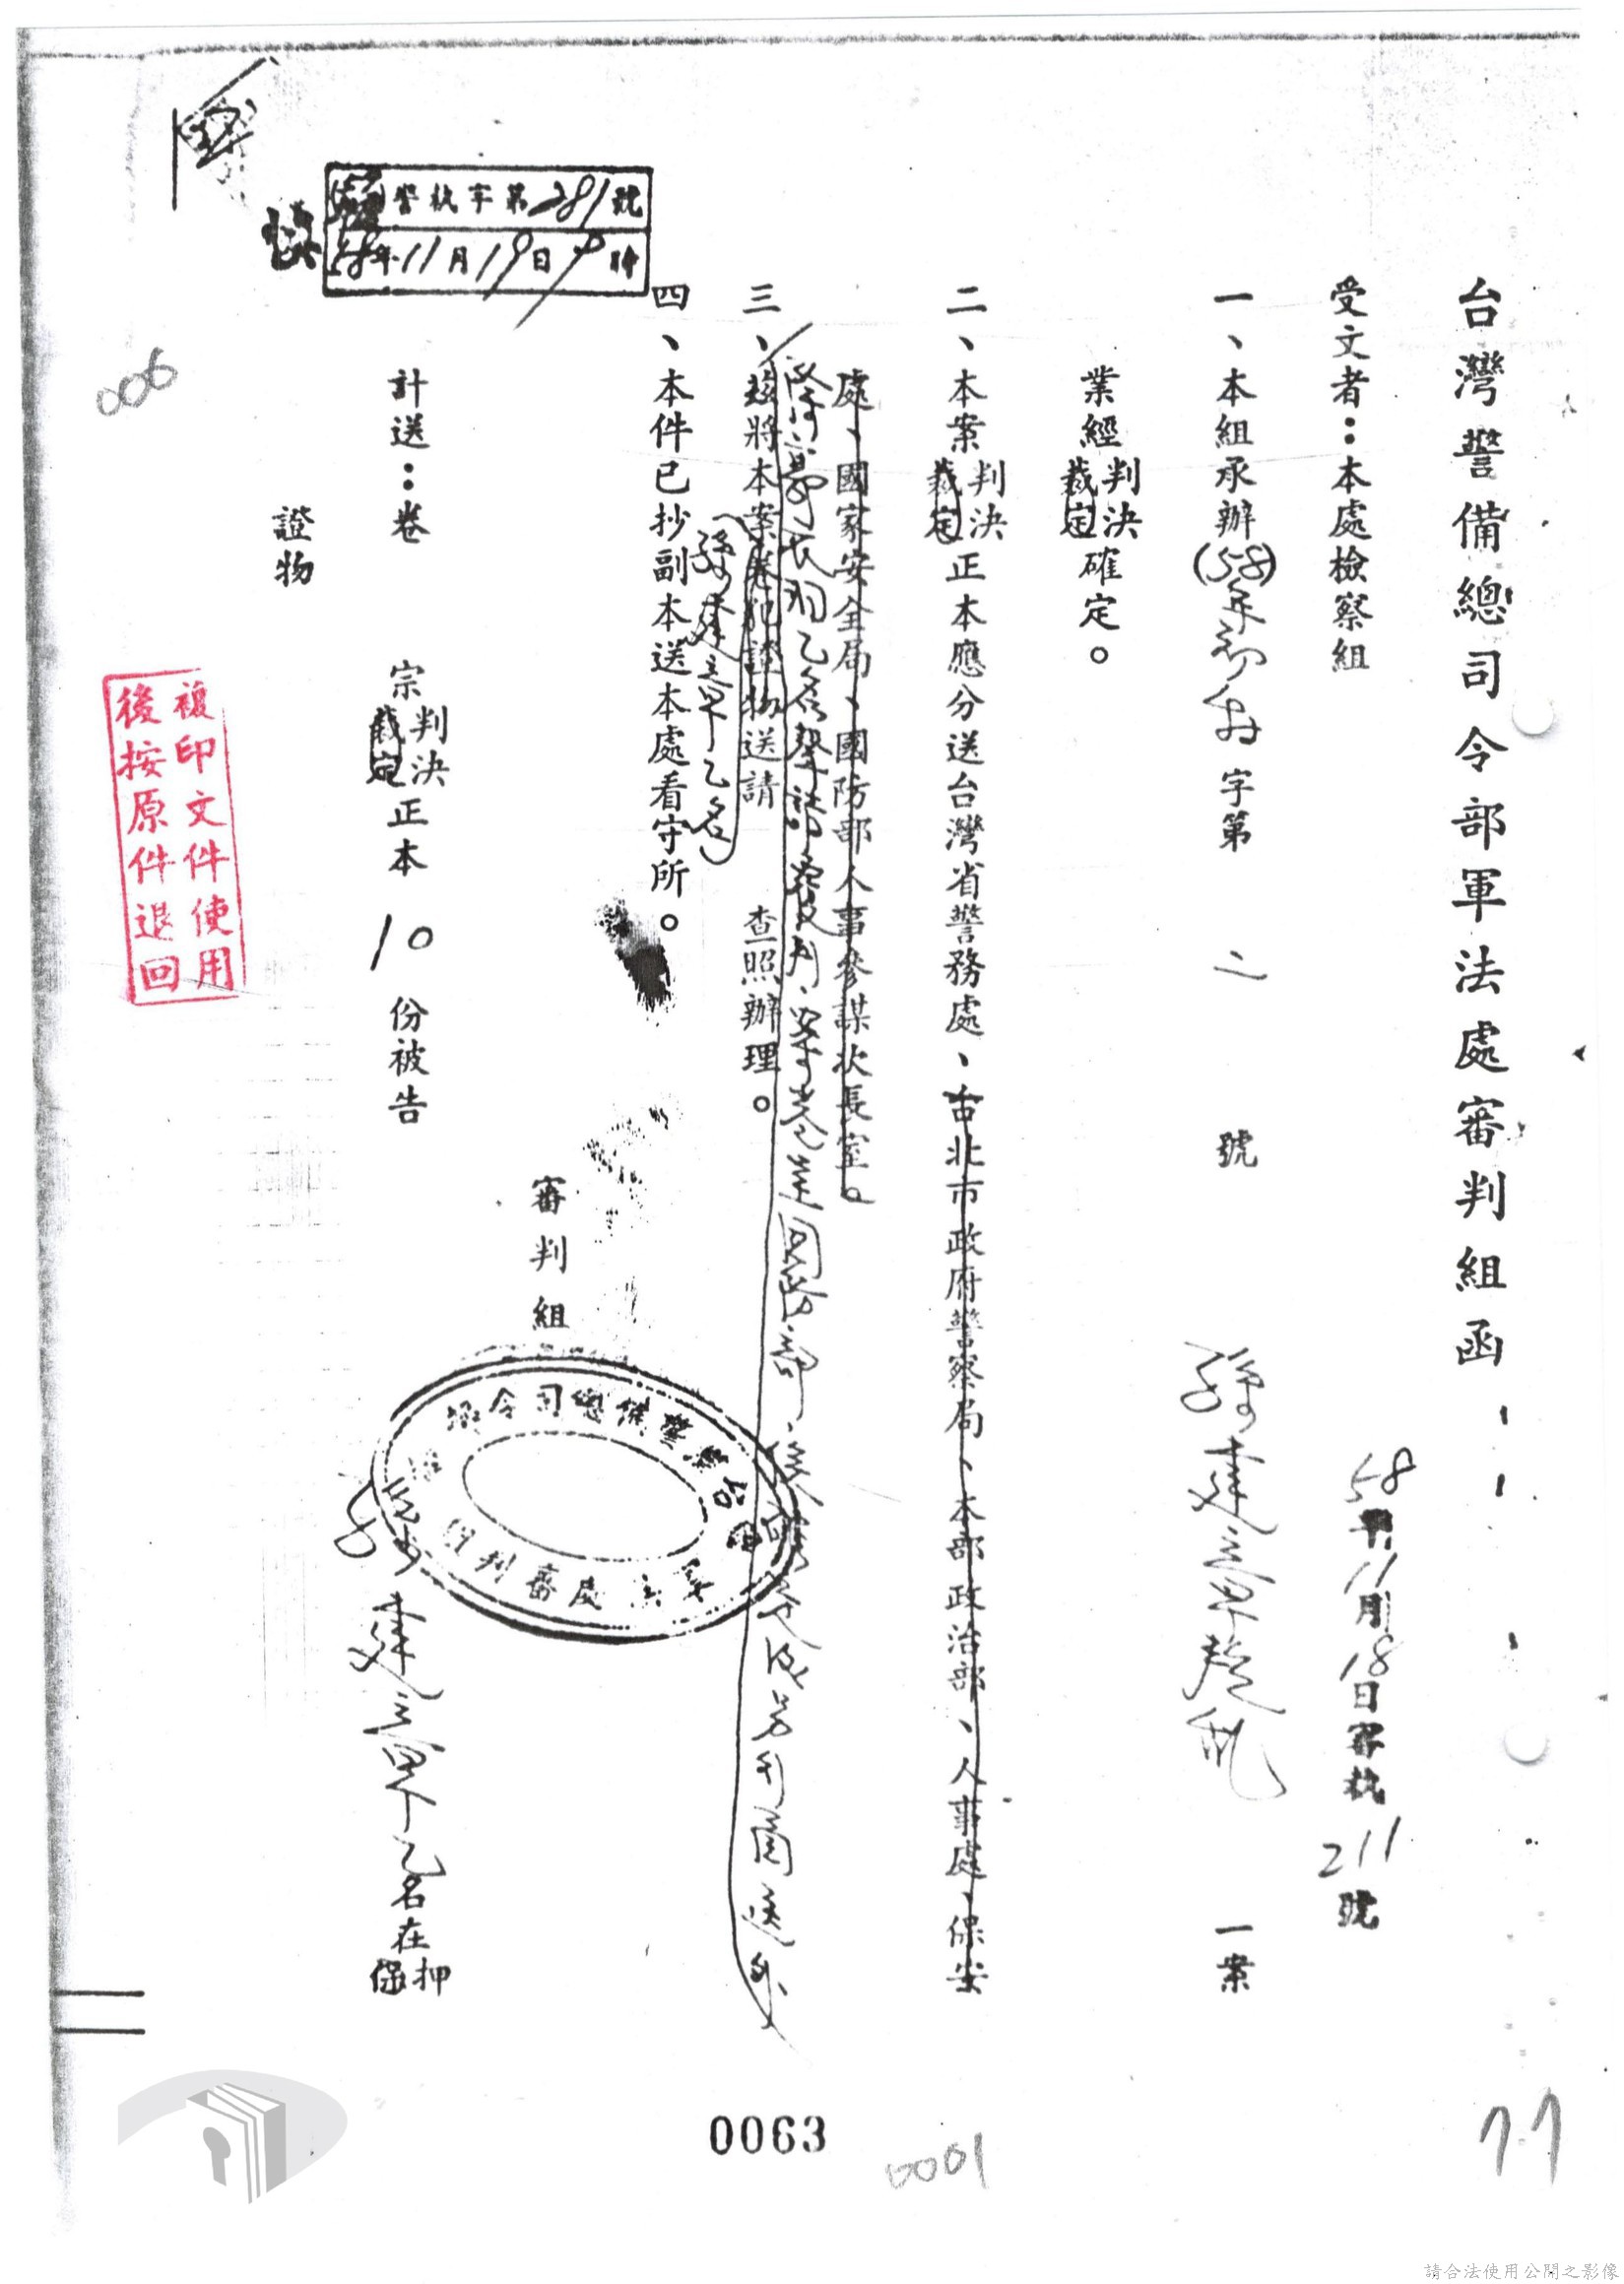 台灣警備總司令部軍法處審判組函
58年11月18日 211號
受文者：本處檢察組
一、本組承辦(58)年初字第 號孫建章叛亂一案
業經判決裁定確定。
二、本案判決裁定正本應分送台灣省警務處、台北市政府警察局、本部政治部、人事處、保安
處、國家安全局、國防部人事參謀次長室。
乙名聲請覆判、案卷送國防部、後另行函送外
三、茲將本案卷犯證物送請 查照辦理。
(孫建章乙名)
四、本件已抄副本送本處看守所。
審判組
台灣警備總司令部
軍法處審判組
計送：卷 宗判決裁定正本 10 份被告孫建章乙名在押保
證物
警執字第281號
58年11月19日 時
快
006
複印文件使用
後按原件退回
0063
0001
77
請合法使用公開之影像